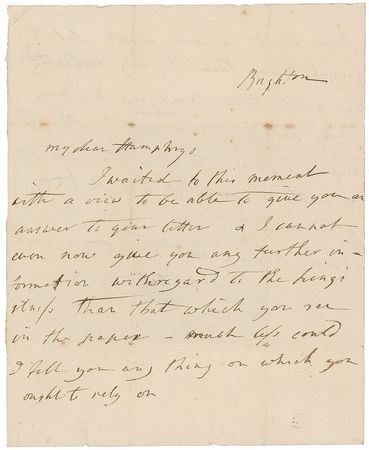 Brighton
my dear Humphrys
I waited to this moment
with a view to be able to give you an
answer to your letter & I cannot
even now give you any further in-
formation with regard to the King's
illness than that which you see
in the paper - much less could
I tell you any thing on which you
ought to rely on